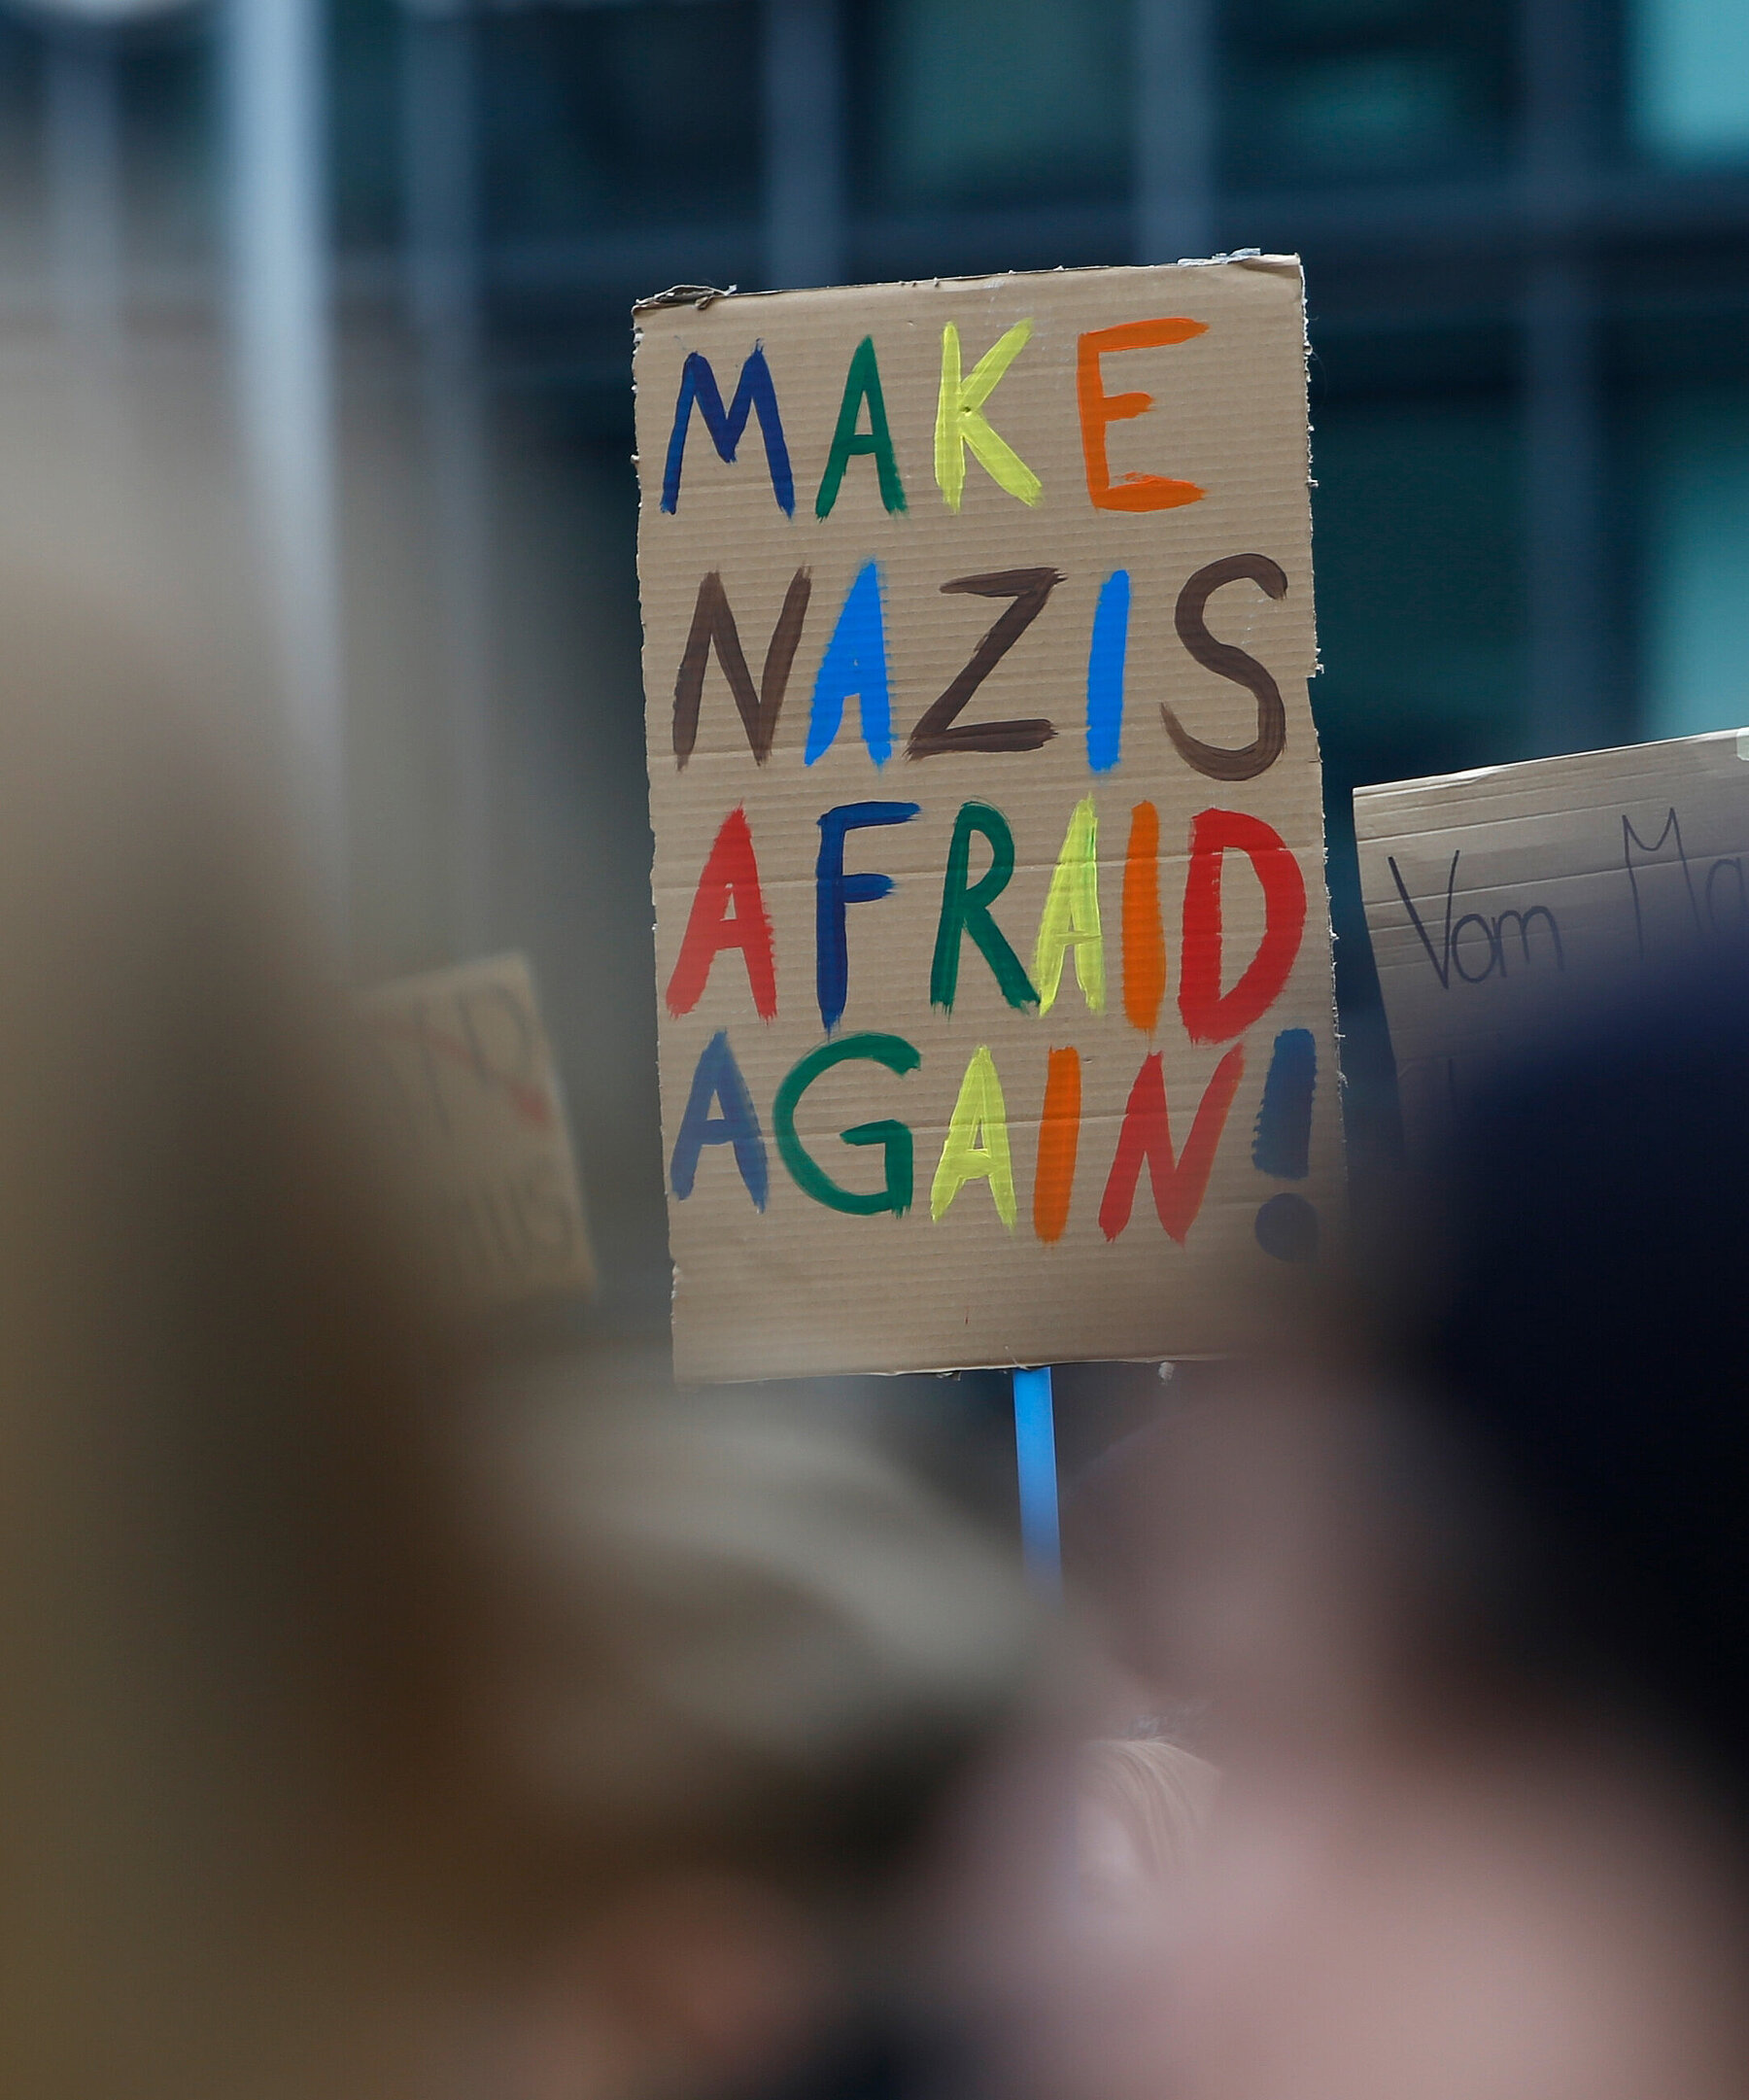 MAKE
NAZIS
AFRAID
AGAIN!
Vom